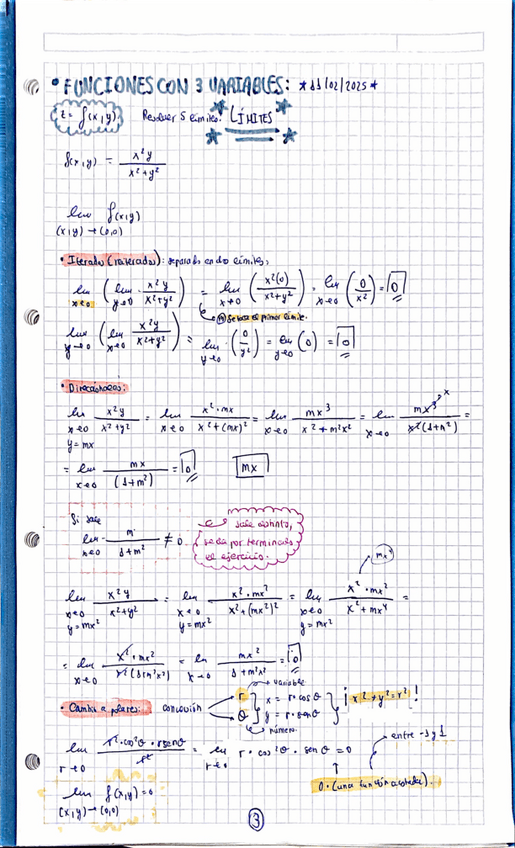 • FUNCIONES CON 3 VARIABLES: * 11/02/2025 *
z = f(x,y) Resolver 5 límites. LÍMITES
f(x,y) = x²y / x²+y²
lim f(x,y)
(x,y)→(0,0)
• Iterados (reiterados): separado en dos límites:
lim x→0 (lim y→0 x²y / x²+y²) = lim x→0 (x²(0) / x²+y²) = lim x→0 (0 / x²) = 0
Se hace el primer límite.
lim y→0 (lim x→0 x²y / x²+y²) = lim y→0 (0 / y²) = lim y→0 (0) = 0
• Direccionales:
lim x→0 y=mx x²y / x²+y² = lim x→0 x²·mx / x²+(mx)² = lim x→0 mx³ / x²+m²x² = lim x→0 mx³ / x²(1+m²) =
= lim x→0 mx / (1+m²) = 0 mx
Si sale
lim x→0 m / 1+m² ≠ 0
sale distinto,
se da por terminado
el ejercicio.
mx⁴
lim x→0 y=mx² x²y / x²+y² = lim x→0 y=mx² x²·mx² / x²+(mx²)² = lim x→0 y=mx² x²·mx² / x²+mx⁴ =
= lim x→0 x²·mx² / x²(1+m²x²) = lim x→0 mx² / 1+m²x² = 0
• Cambio a polares: conversión r → variable x = r·cos θ ¡x²+y²=r²!
θ → número y = r·sen θ
lim r→0 r²·cos²θ·r senθ / r² = lim r→0 r·cos²θ·senθ = 0
entre -1 y 1
0·(una función acotada).
lim f(x,y)=0
(x,y)→(0,0)
3